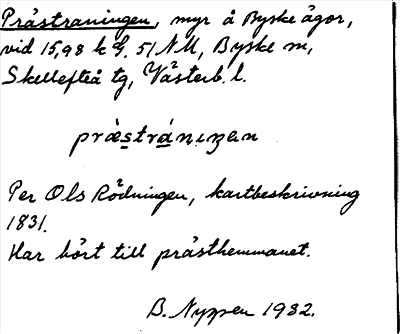 Prästraningen, myr å Byske ägor,
vid 15,98 k G. 51 N M, Byske m,
Skellefteå tg, Västerb. l.
præstránıŋen
Per Ols Rödningen, kartbeskrivning
1831.
Har hört till prästhemmanet.
B. Nyppen 1932.